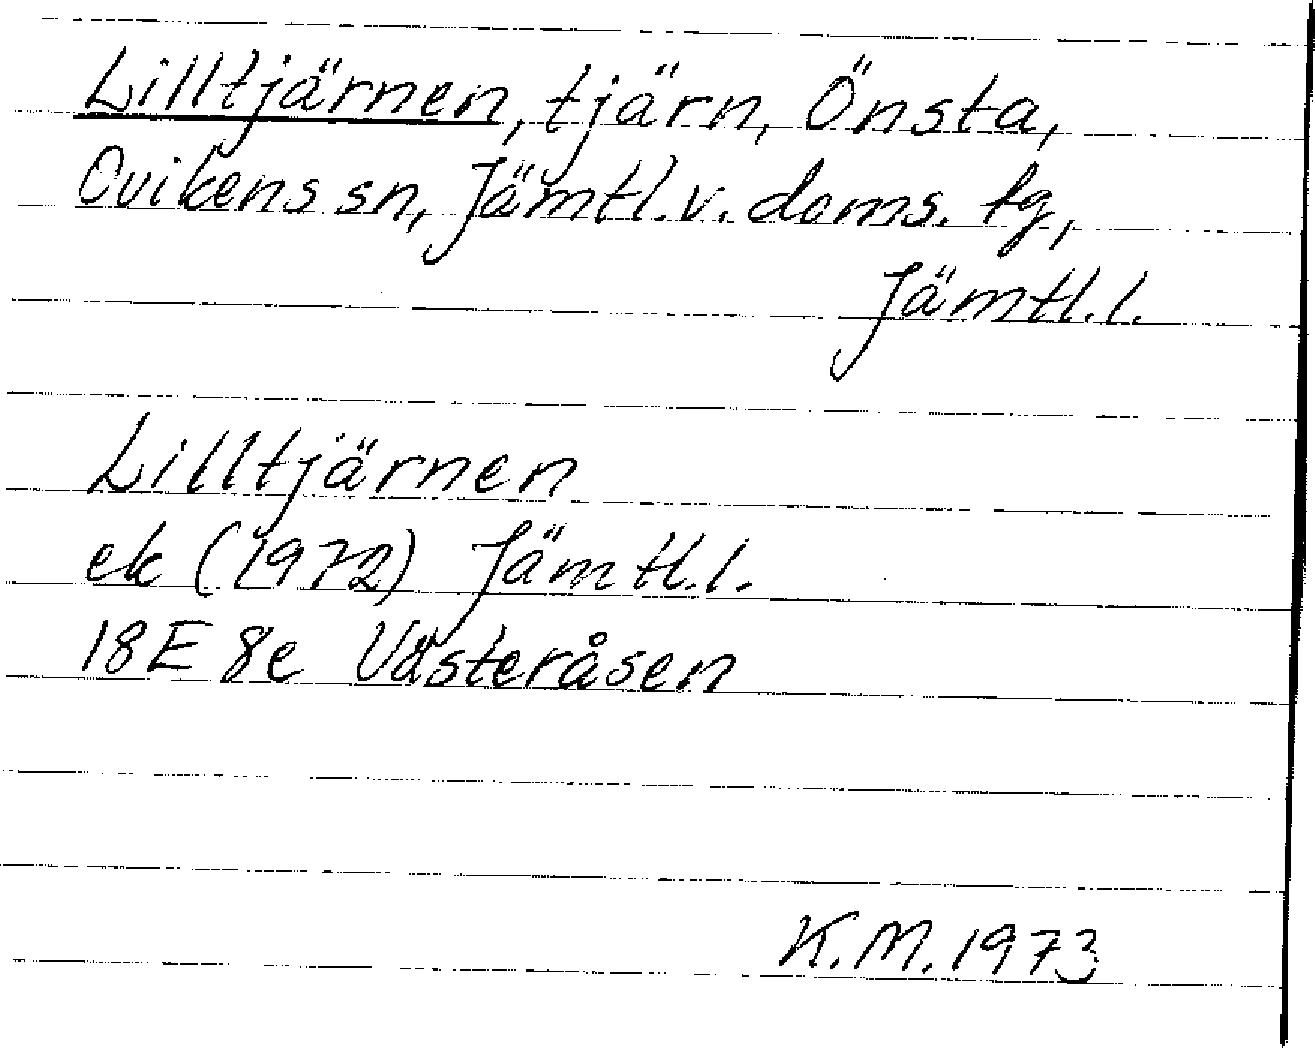 Lilltjärnen, tjärn, Önsta,
Ovikens sn, Jämtl.v. doms. tg,
Jämtl.l.
Lilltjärnen
ek (1972) Jämtl.l.
18E 8e Västeråsen
K.M. 1973